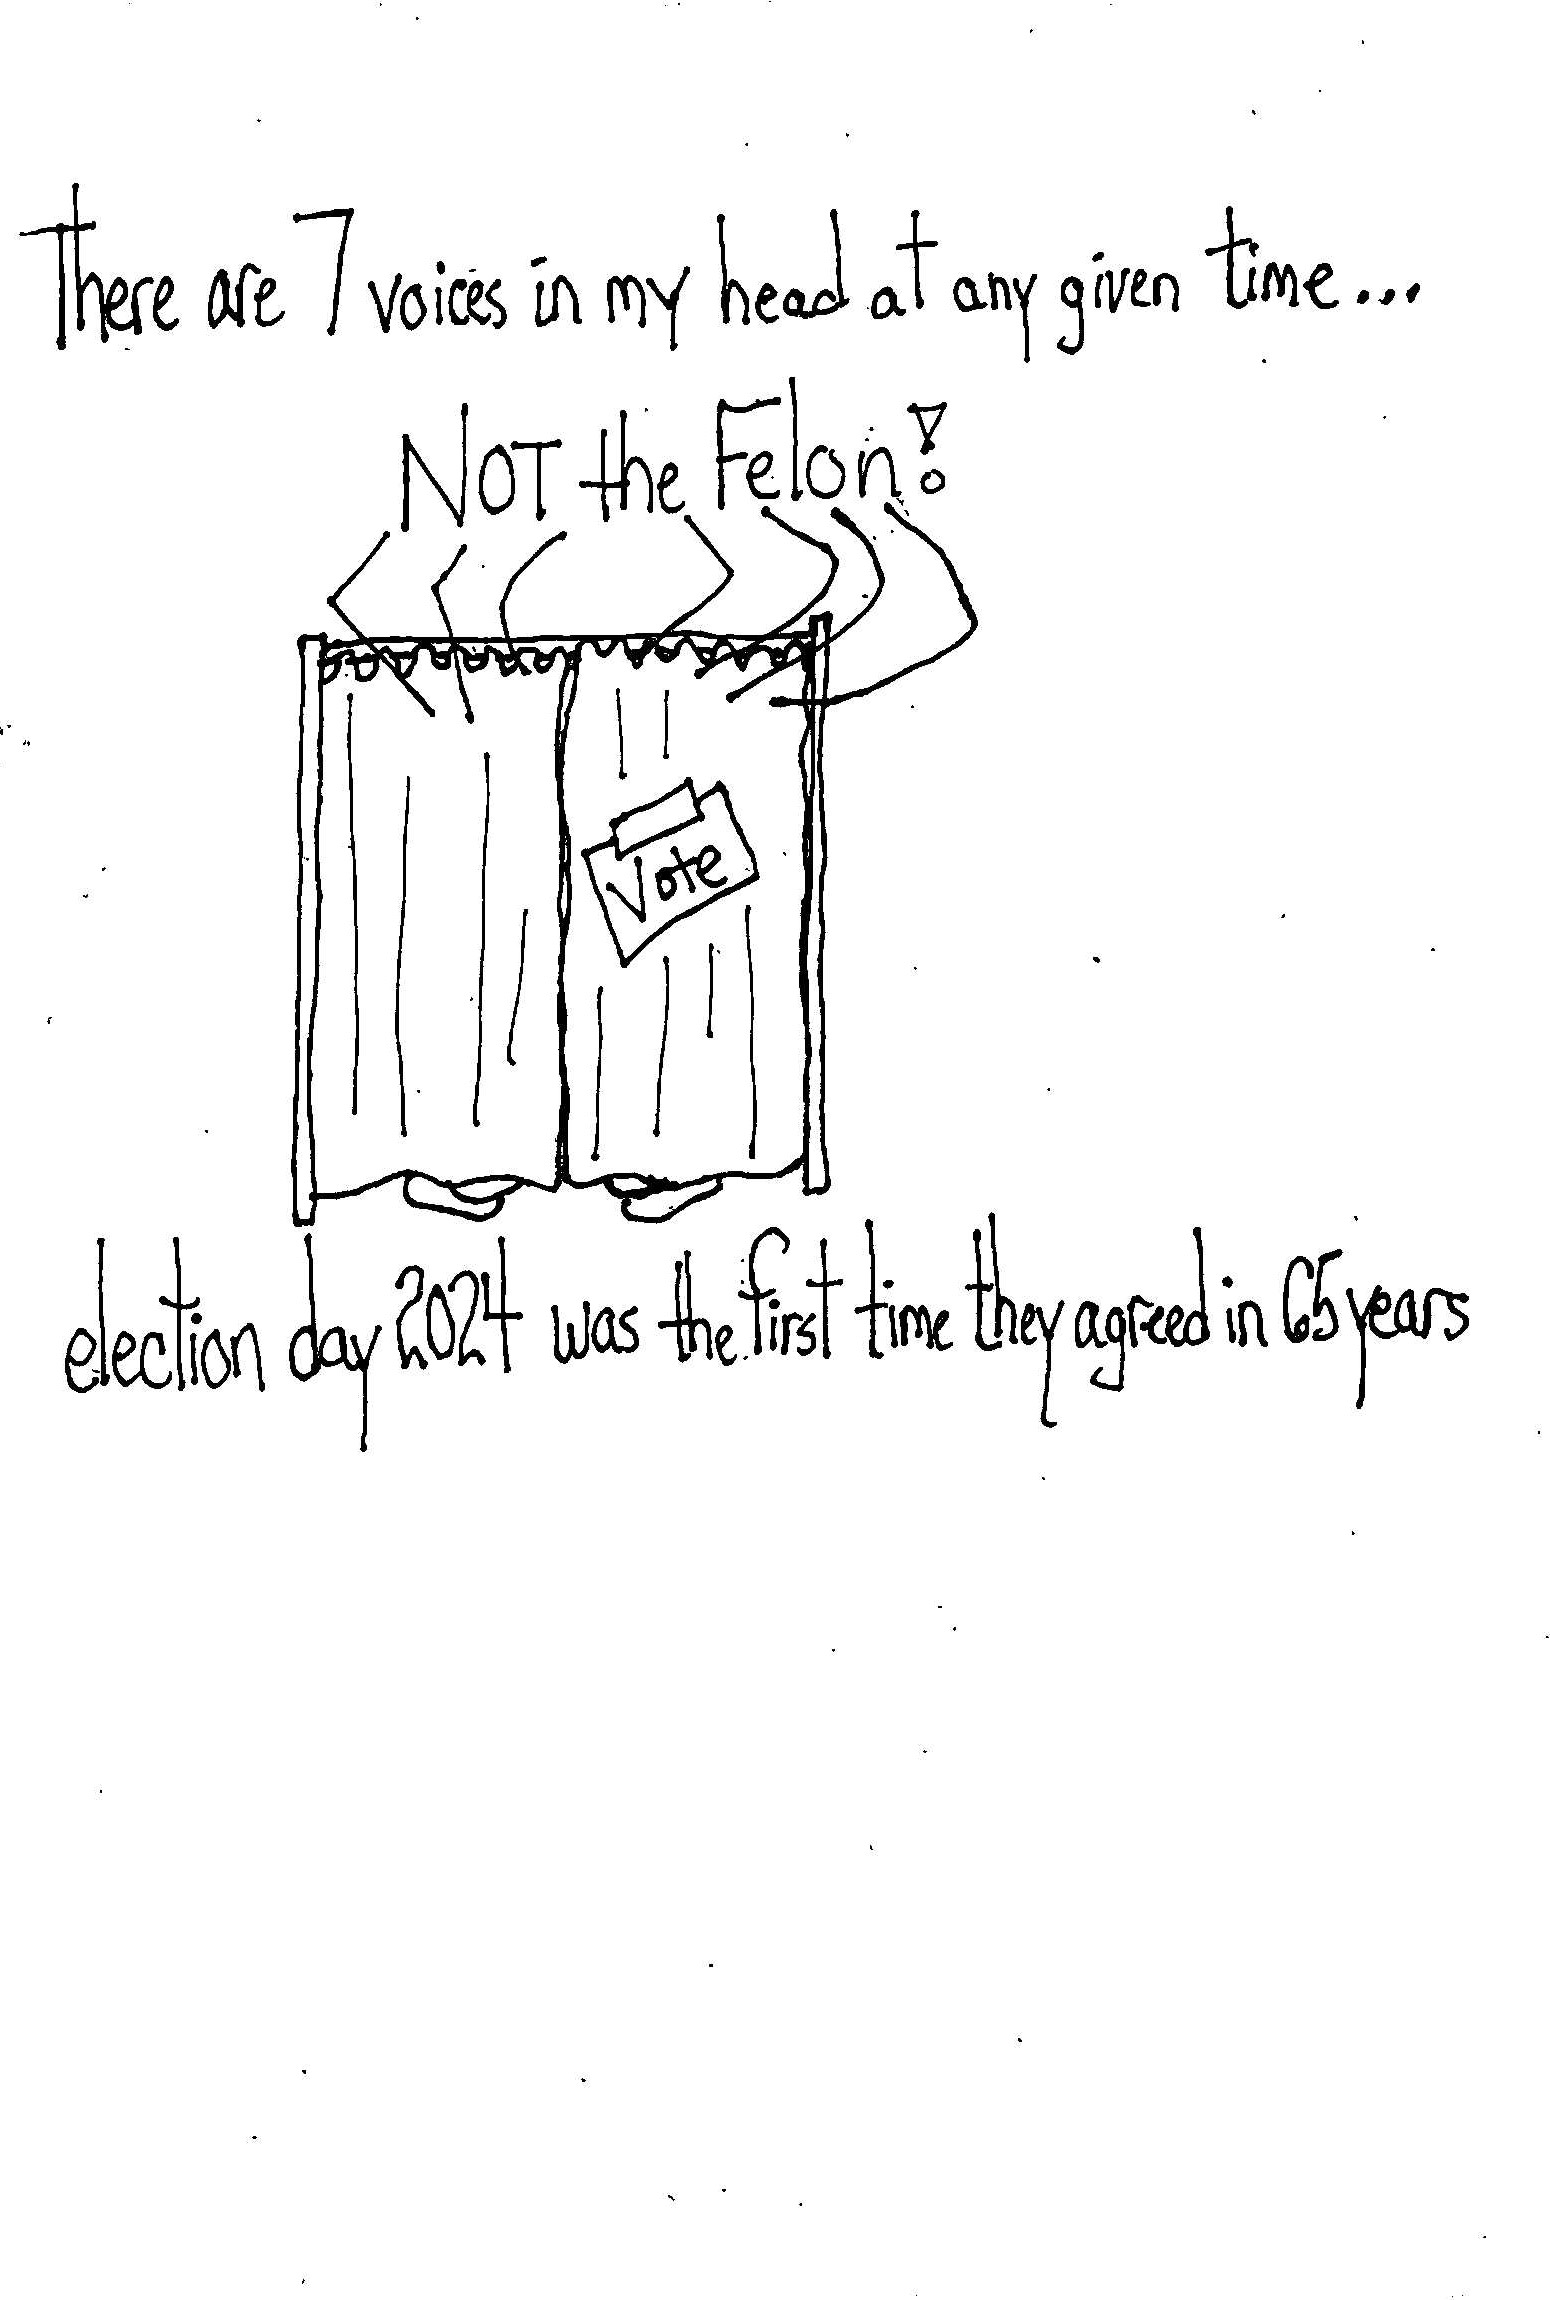 There are 7 voices in my head at any given time...
NOT the Felon!
Vote
election day 2024 was the first time they agreed in 65 years